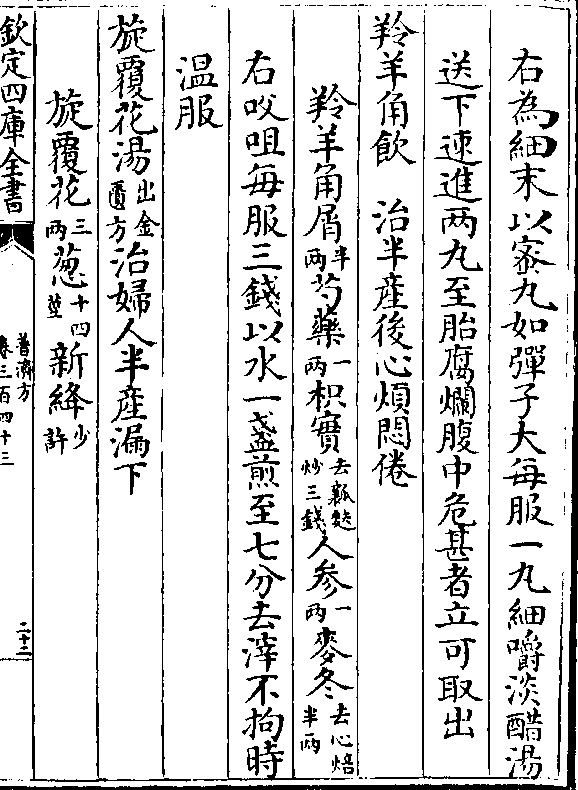 右為細末以蜜丸如彈子大每服一丸細嚼淡醋湯
送下速進两丸至胎腐爛腹中危甚者立可取出
羚羊角飲　治半產後心煩悶倦
羚羊角屑半两芍藥一两枳實去瓤麩炒三錢人參一两麥冬去心焙半两
右㕮咀每服三錢以水一盞煎至七分去滓不拘時
温服
旋覆花湯出金匱方治婦人半產漏下
旋覆花三两葱十四莖新絳少許
欽定四庫全書
普濟方
卷三百四十三
二十二